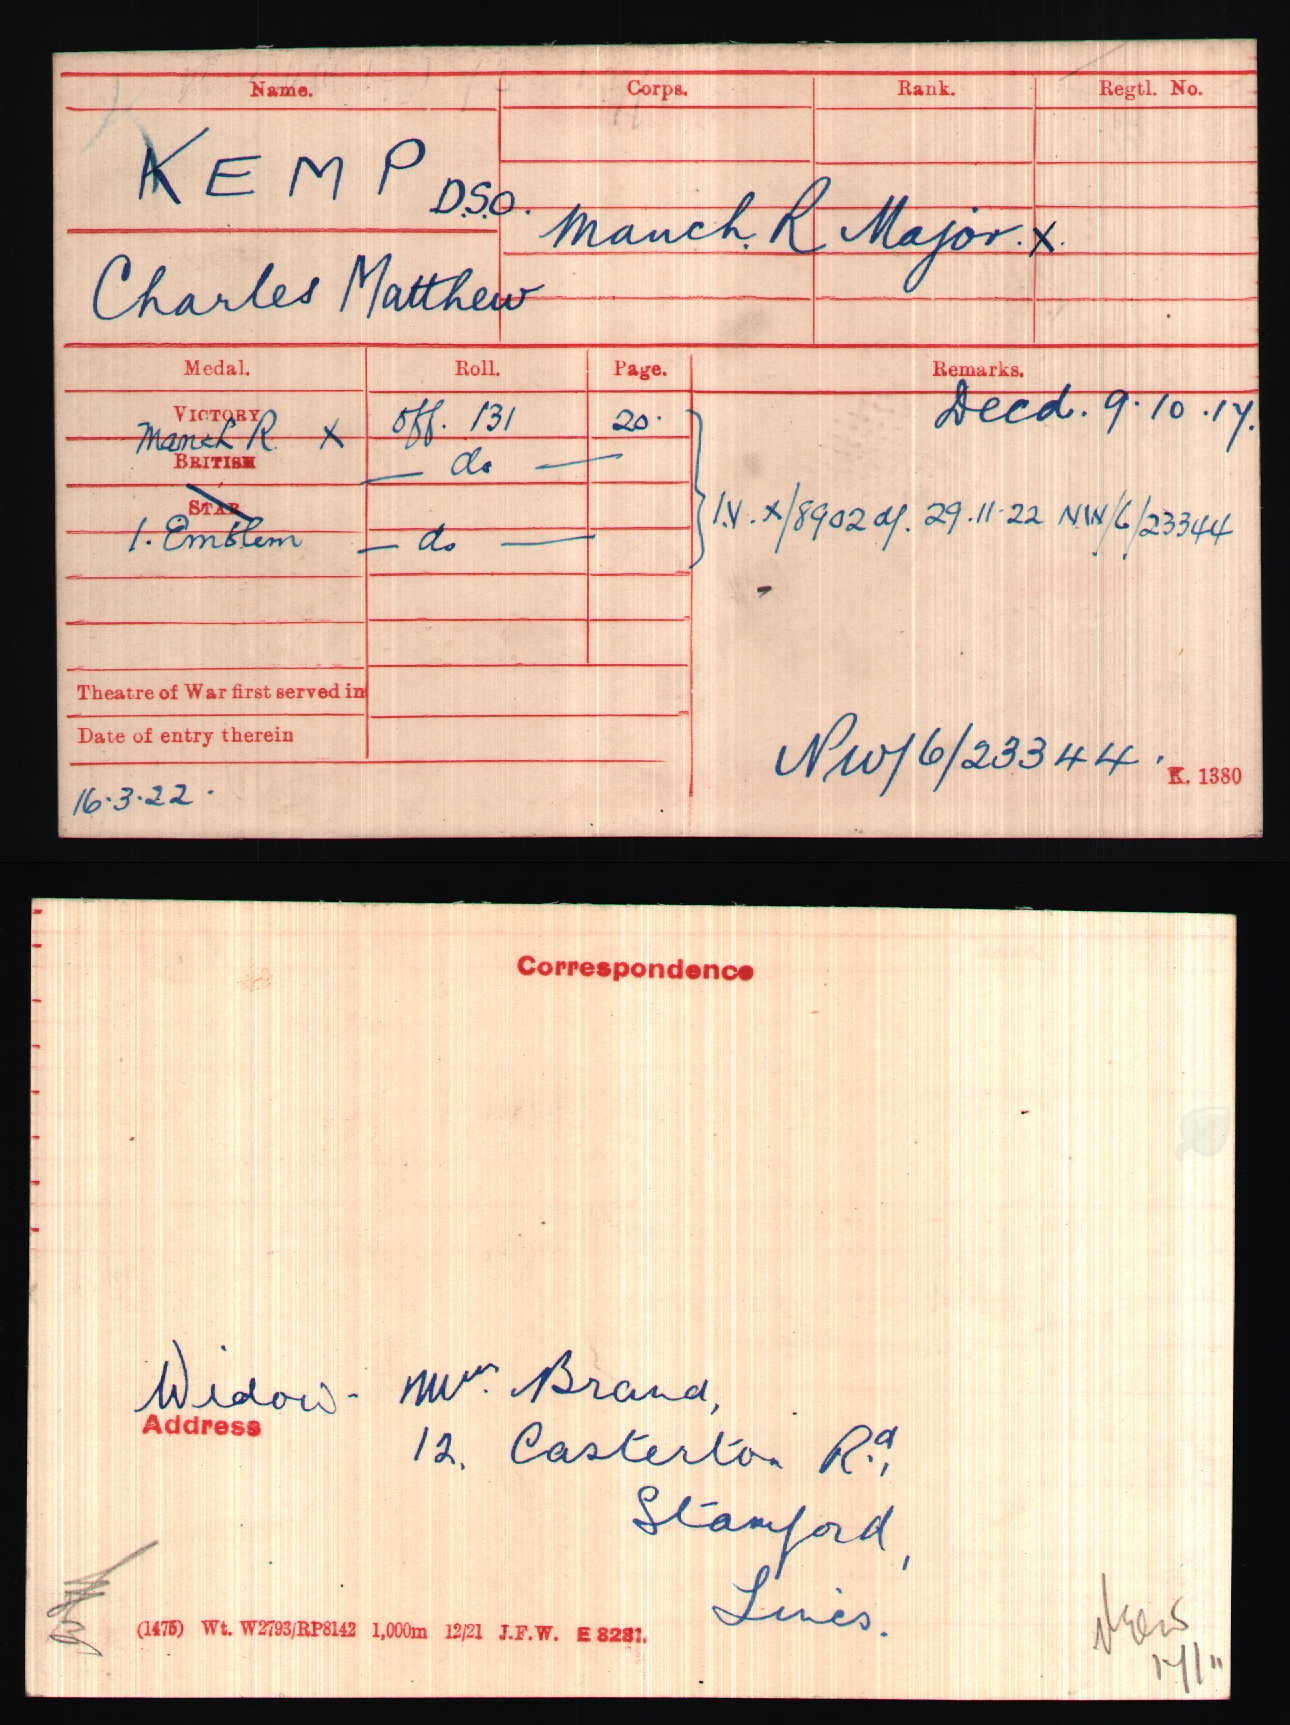 Name. Corps. Rank. Regtl. No.
KEMP D.S.O.
Manch. R Major. X.
Charles Matthew
Medal. Roll. Page. Remarks.
Decd. 9.10.17.
VICTORY Off. 131 20.
Manch R. X
BRITISH — do —
STAR
I.V. X/8902 df. 29.11.22 NW/6/23344
1. Emblem — do —
Theatre of War first served in
Date of entry therein
NW/6/23344.
K. 1380
16.3.22.
Correspondence
Widow - Mrs. Brand,
Address
12, Casterton Rd.,
Stamford,
Lincs.
(1475) Wt. W2793/RP8142 1,000m 12/21 J.F.W. E 8281.